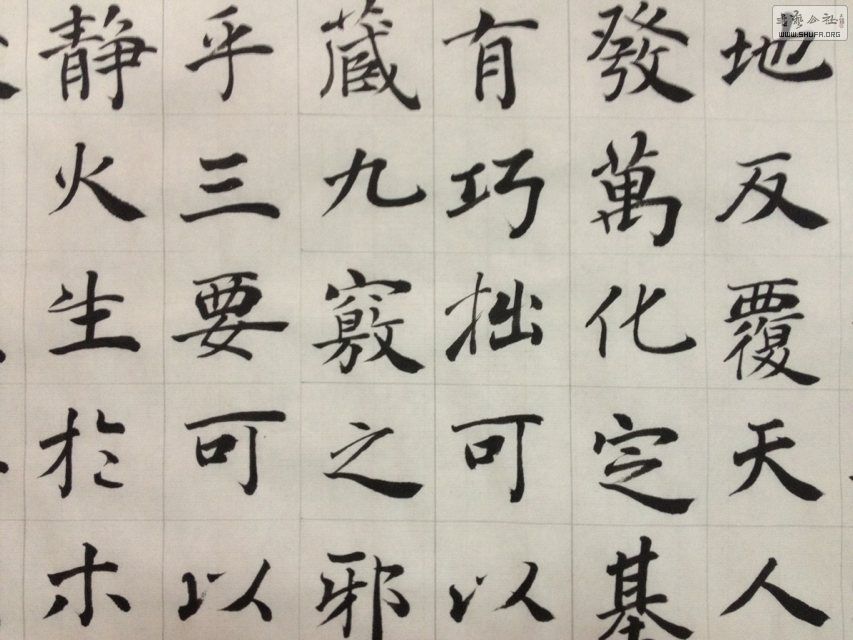 地反覆天人
發萬化定基
有巧拙可以
藏九竅之邪
乎三要可以
靜火生於木
WWW.SHUFA.ORG